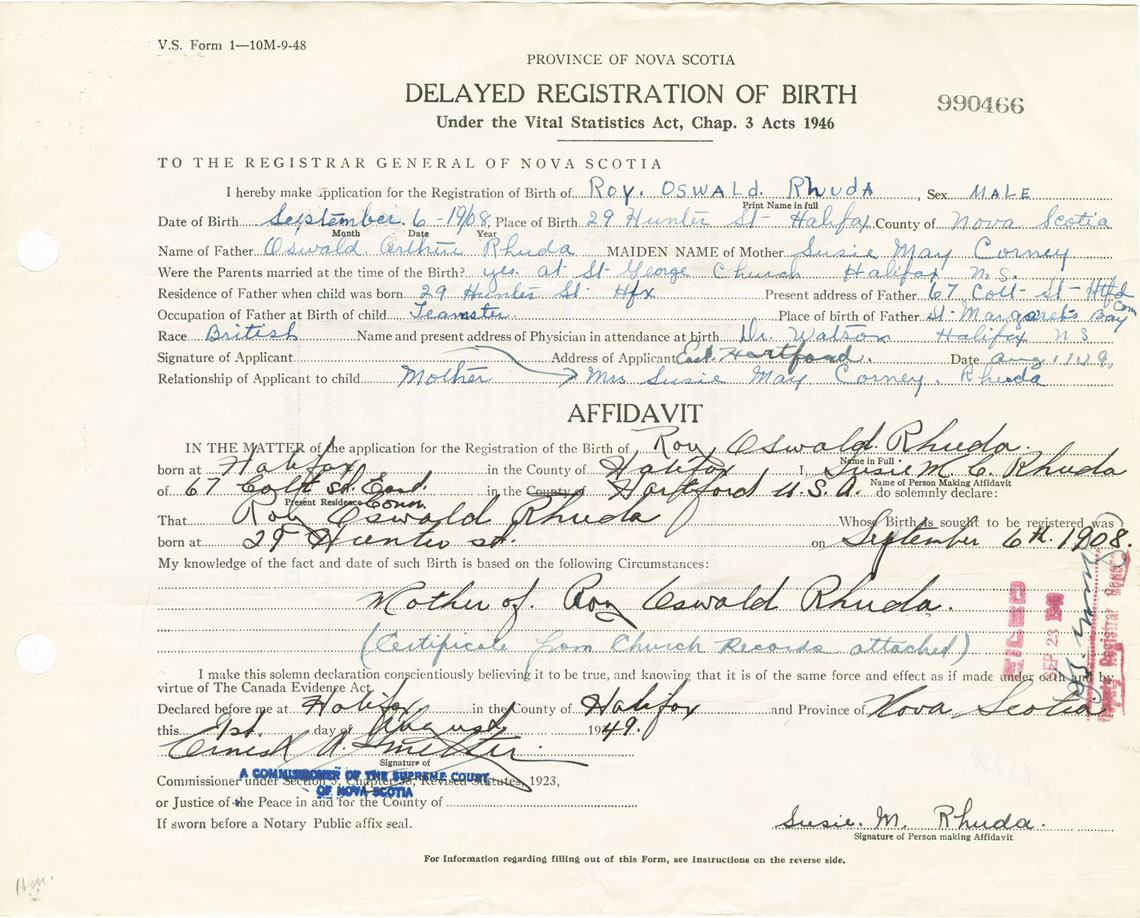 V.S. Form 1—10M-9-48
PROVINCE OF NOVA SCOTIA
DELAYED REGISTRATION OF BIRTH
990466
Under the Vital Statistics Act, Chap. 3 Acts 1946
TO THE REGISTRAR GENERAL OF NOVA SCOTIA
I hereby make application for the Registration of Birth of Roy. OSWALD. Rhuda, Sex MALE
Print Name in full
Date of Birth September. 6-1908, Place of Birth 29 Hunter St- Halifax County of Nova Scotia
Month Date Year
Name of Father Oswald Arthur Rhuda MAIDEN NAME of Mother Susie May Corney
Were the Parents married at the time of the Birth? yes. at St George Church Halifax N.S.
Residence of Father when child was born 29 Hunter St- Hfx Present address of Father 67 Colt-St-Htfd Conn
Occupation of Father at Birth of child Teamster. Place of birth of Father St-Margarets Bay
Race British Name and present address of Physician in attendance at birth Dr. Watson Halifax N S
Signature of Applicant Address of Applicant East Hartford. Date Aug
Relationship of Applicant to child Mother Mrs Susie May Corney. Rhuda
AFFIDAVIT
IN THE MATTER of the application for the Registration of the Birth of Roy Oswald Rhuda.
Name in Full
born at Halifax in the County of Halifax I, Susie M. C. Rhuda
Name of Person Making Affidavit
of 67 Colt St. East in the County of Hartford U.S.A. do solemnly declare:
Present Residence Conn.
That Roy Oswald Rhuda Whose Birth is sought to be registered was
born at 29 Hunter St. on September 6th. 1908.
My knowledge of the fact and date of such Birth is based on the following Circumstances:
Mother of. Roy Oswald Rhuda.
(Certificate from Church Records attached)
FILED
SEP 23 1949
Deputy Registrar General
I make this solemn declaration conscientiously believing it to be true, and knowing that it is of the same force and effect as if made under oath and by
virtue of The Canada Evidence Act.
Declared before me at Halifax in the County of Halifax and Province of Nova Scotia
this 1st. day of August 1949.
Signature of
Commissioner under Section 3, Chapter 38, Revised Statutes, 1923,
A COMMISSIONER OF THE SUPREME COURT
OF NOVA SCOTIA
or Justice of the Peace in and for the County of
If sworn before a Notary Public affix seal.
Susie. M. Rhuda.
Signature of Person making Affidavit
For Information regarding filling out of this Form, see instructions on the reverse side.